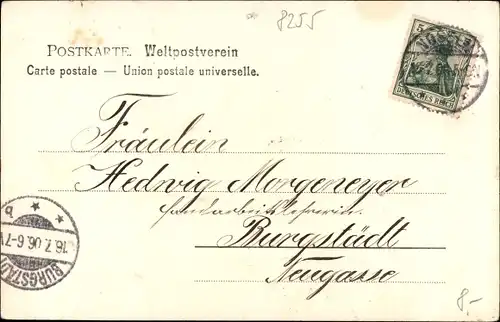 8255
POSTKARTE. Weltpostverein
Carte postale — Union postale universelle.
5
DEUTSCHES REICH
Fräulein
Hedwig Morgeneyer
Handarbeitslehrerin.
Burgstädt
Neugasse
b
16.7.06.6-7V
BURGSTÄDT
8.-